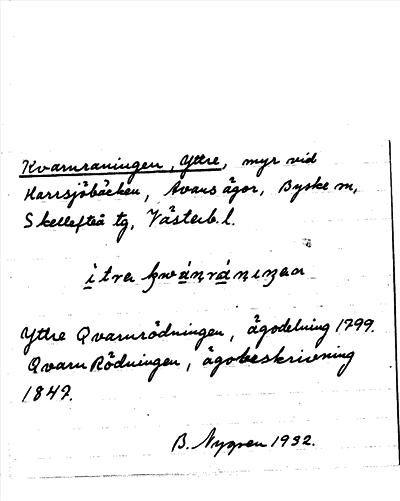 Kvarnraningen, Yttre, myr vid
Harrsjöbäcken, Avans ägor, Byske m,
Skellefteå tg, Västerb. l.
itra kwánrániŋan
Yttre Qvarnrödningen, ägodelning 1799.
Qvarn Rödningen, ägobeskrivning
1847.
B. Nygren 1932.